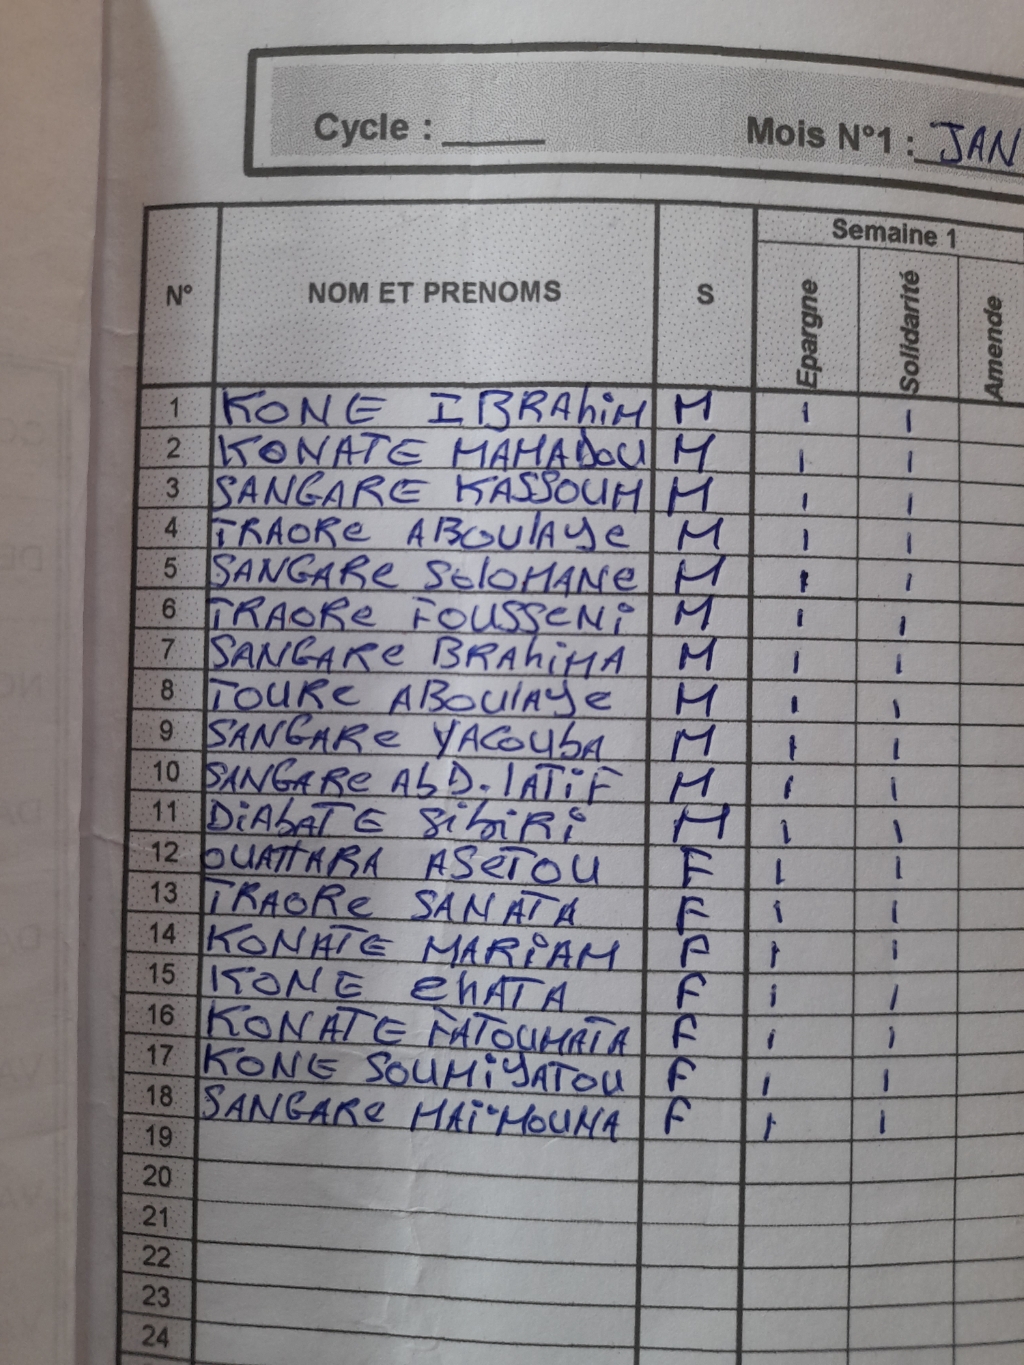 Cycle : Mois N°1 : JAN
Semaine 1
N° NOM ET PRENOMS S Epargne Solidarité Amende
1 KONE IBRAhiM M I I
2 KONATE MAMADOU M I I
3 SANGARE KASSOUM M I I
4 TRAORe ABOUlAye M I I
5 SANGARe SOlOMANe M I I
6 TRAORe FOUSSeNi M I I
7 SANGARe BRAhiMA M I I
8 TOURe ABOUlAye M I I
9 SANGARe YACOUbA M I I
10 SANGARe AbD.lATiF M I I
11 DiAbATE SibiRi M I I
12 OUATTARA ASeTOU F I I
13 TRAORe SANATA F I I
14 KONATE MARiAM F I I
15 KONE ehATA F I I
16 KONATE FATOUMATA F I I
17 KONE SOUMiyATOU F I I
18 SANGARe MAi-MOUNA F I I
19
20
21
22
23
24